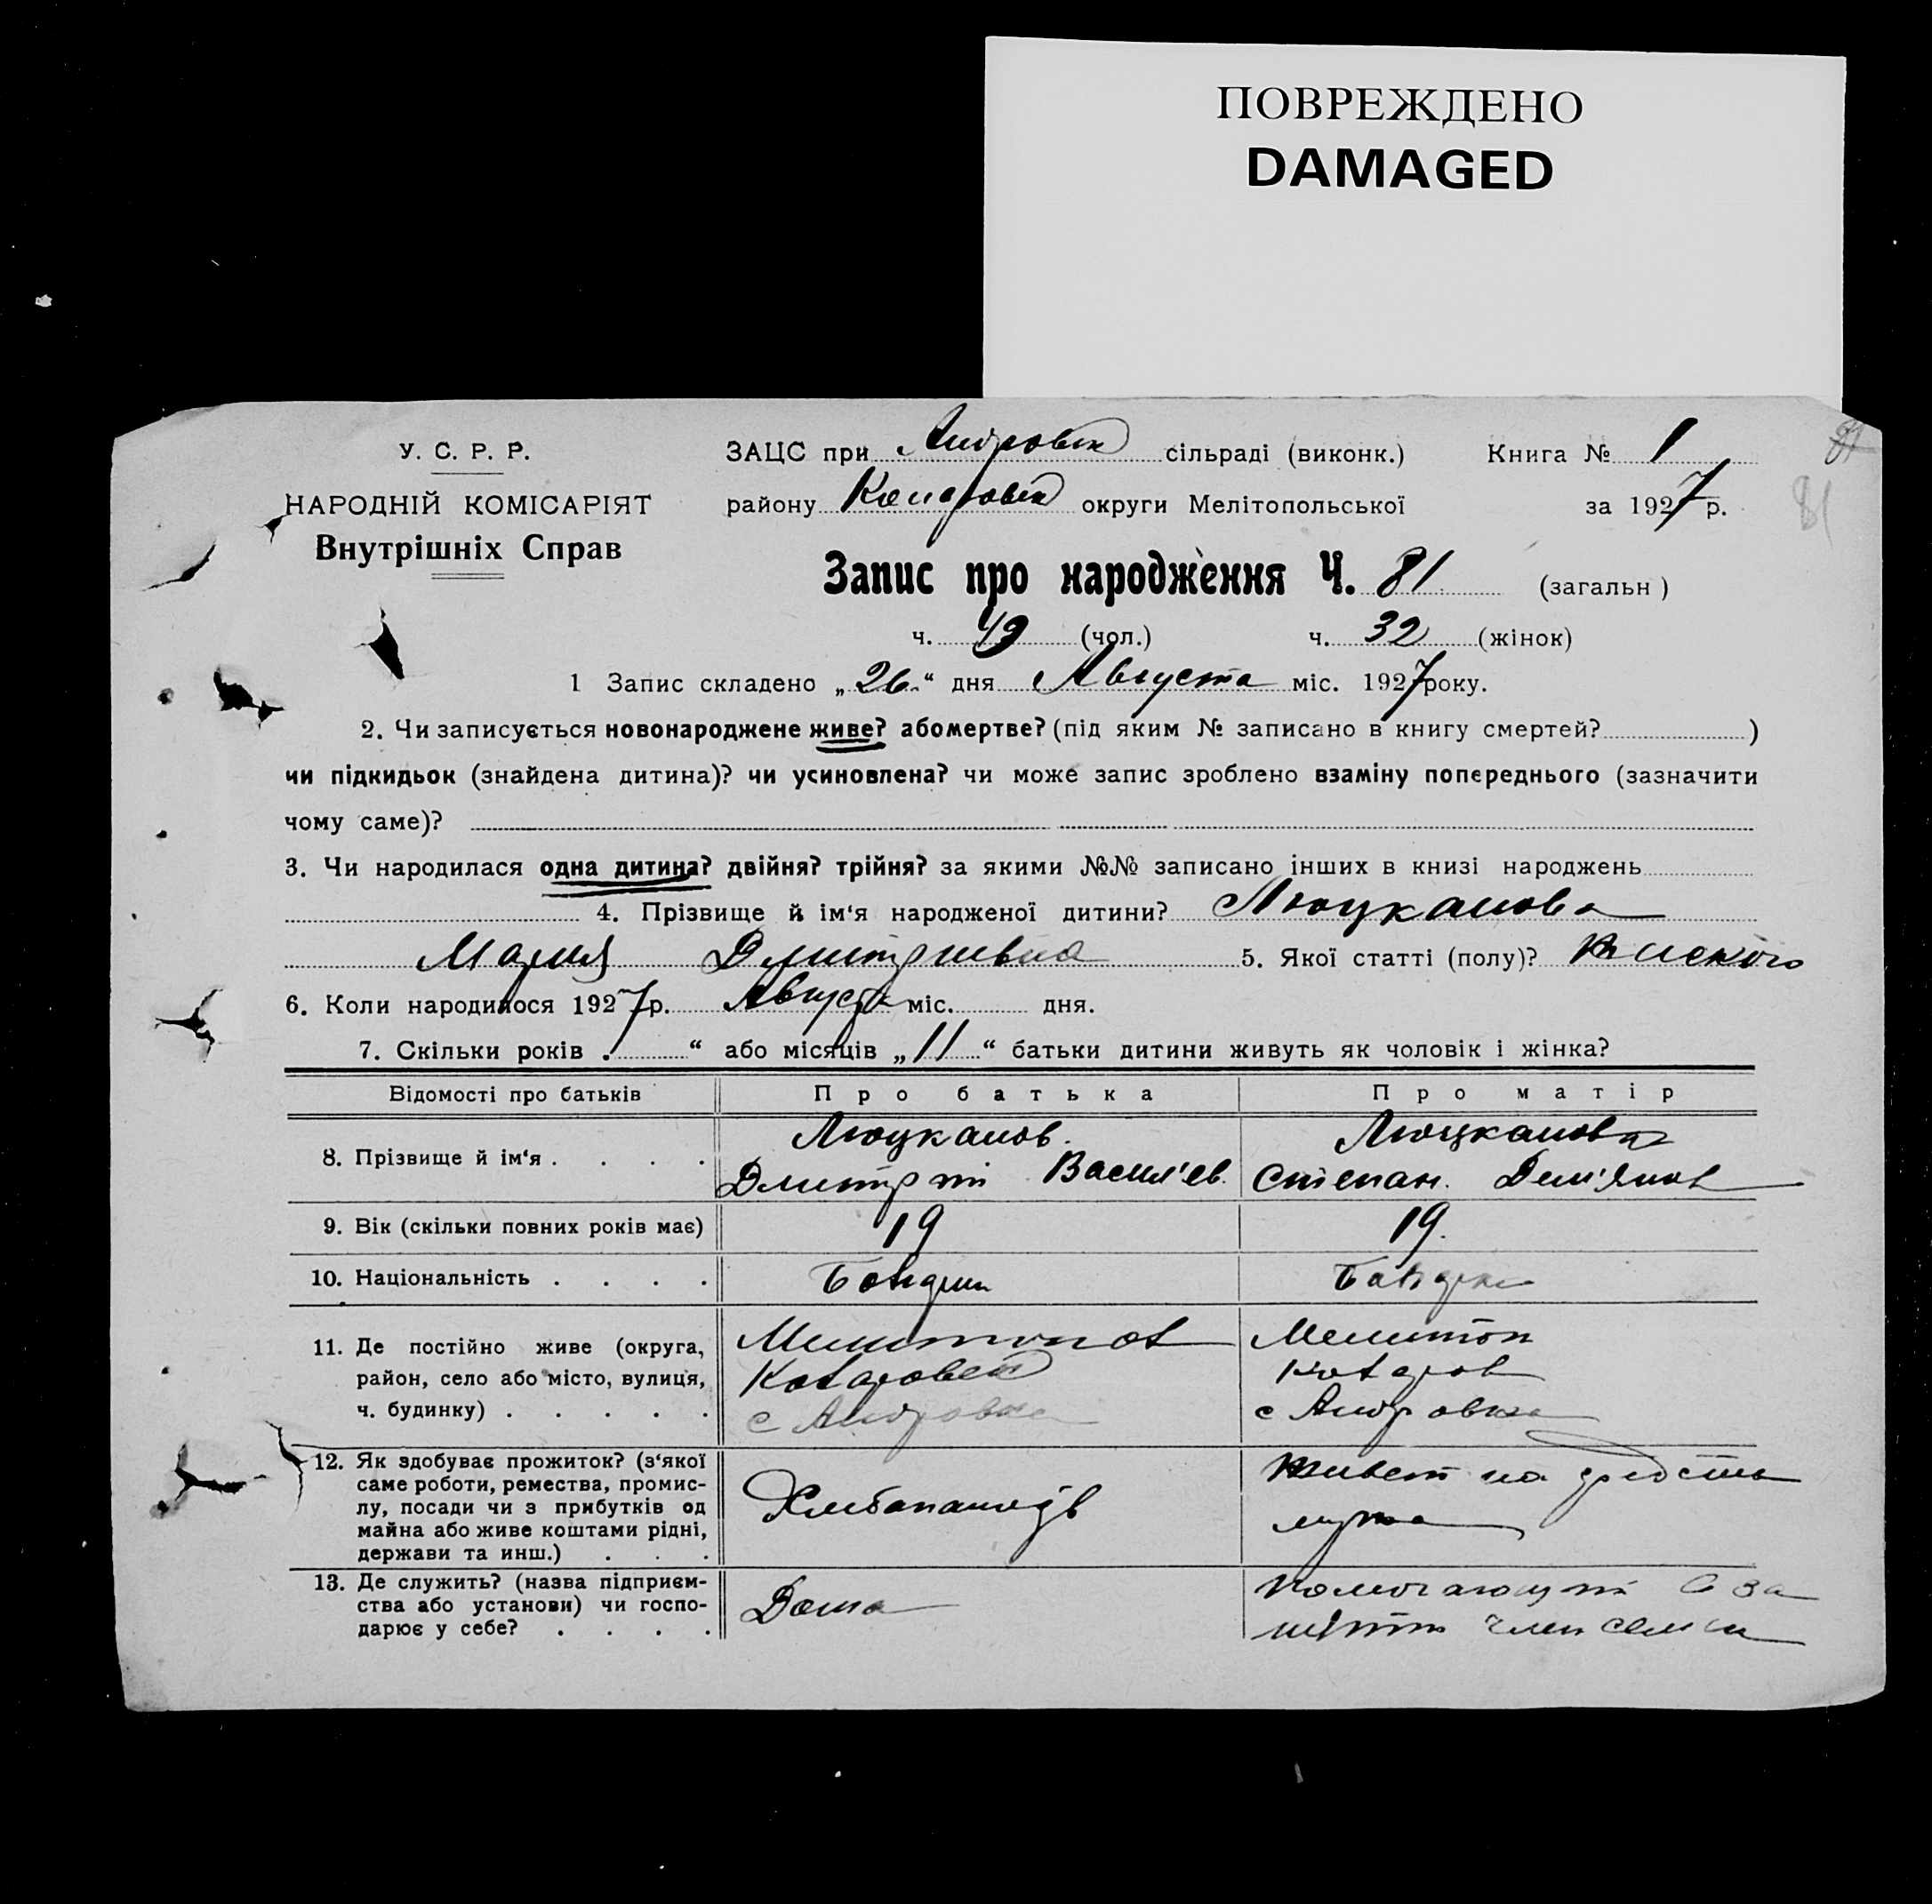 ПОВРЕЖДЕНО
DAMAGED
81
У. С. Р. Р.
ЗАЦС при Андровск сільраді (виконк.) Книга № 1
НАРОДНІЙ КОМІСАРІЯТ
району округи Мелітопольської за 1927 р.
81
Внутрішніх Справ
Запис про народження Ч. 81 (загальн)
ч. 49 (чол.) ч. 32 (жінок)
1 Запис складено „26“ дня Августа міс. 1927 року.
2. Чи записується новонароджене живе? або мертве? (під яким № записано в книгу смертей? )
чи підкидьок (знайдена дитина)? чи усиновлена? чи може запис зроблено взаміну попереднього (зазначити
чому саме)?
3. Чи народилася одна дитина? двійня? трійня? за якими №№ записано інших в книзі народжень
4. Прізвище й ім‘я народженої дитини? Люцканова
Мария Дмитриевна 5. Якої статті (полу)?
6. Коли народилося 1927 р. Август міс. дня.
7. Скільки років „ “ або місяців „11“ батьки дитини живуть як чоловік і жінка?
Відомості про батьків Про батька Про матір
8. Прізвище й ім‘я . . . . Люцканов. Люцканова
Дмитрій Васил'ев. Степан. Дем'янов
9. Вік (скільки повних років має) 19 19.
10. Національність . . . .
11. Де постійно живе (округа,
район, село або місто, вулиця,
ч. будинку) . . . . .
Мелитоп
с Андровка с Андровка
12. Як здобуває прожиток? (з‘якої
саме роботи, ремества, промис-
лу, посади чи з прибутків од
майна або живе коштами рідні,
держави та инш.) . . .
живет на средства
мужа
13. Де служить? (назва підприєм-
ства або установи) чи госпо-
дарює у себе? . . . .
Дома
член семьи